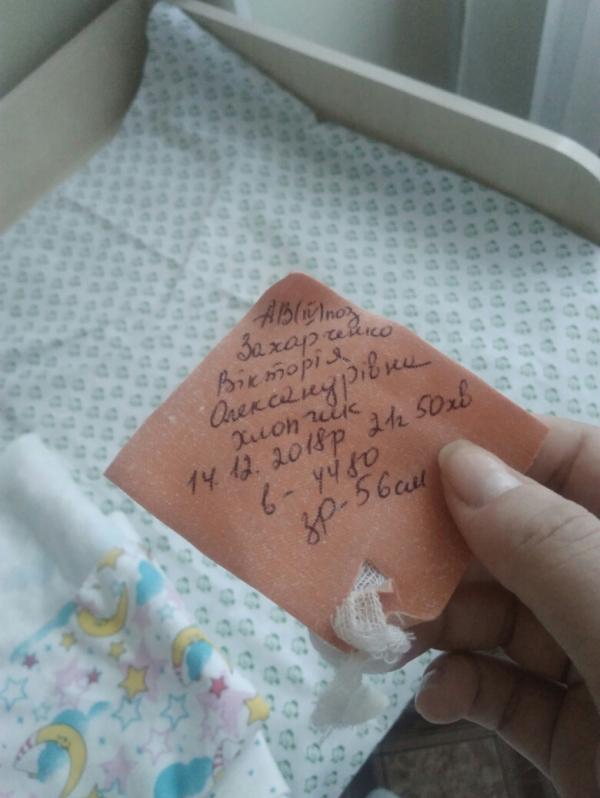 АВ(IV)поз
Захарченко
Вікторія
Олександрівна
хлопчик
14.12.2018р 21г 50хв
в - 4480
зр - 56см